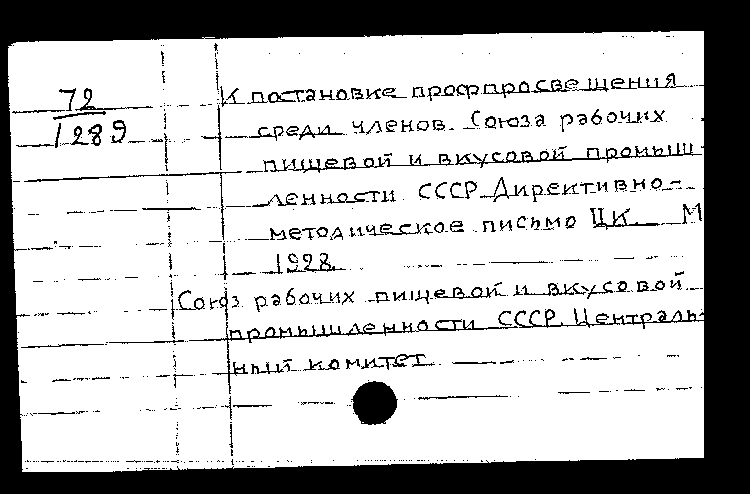 72
1289
К постановке профпросвещения
среди членов Союза рабочих
пищевой и вкусовой промыш-
ленности СССР Директивно-
методическое письмо ЦК. М
1928.
Союз рабочих пищевой и вкусовой
промышленности СССР. Централь-
ный комитет